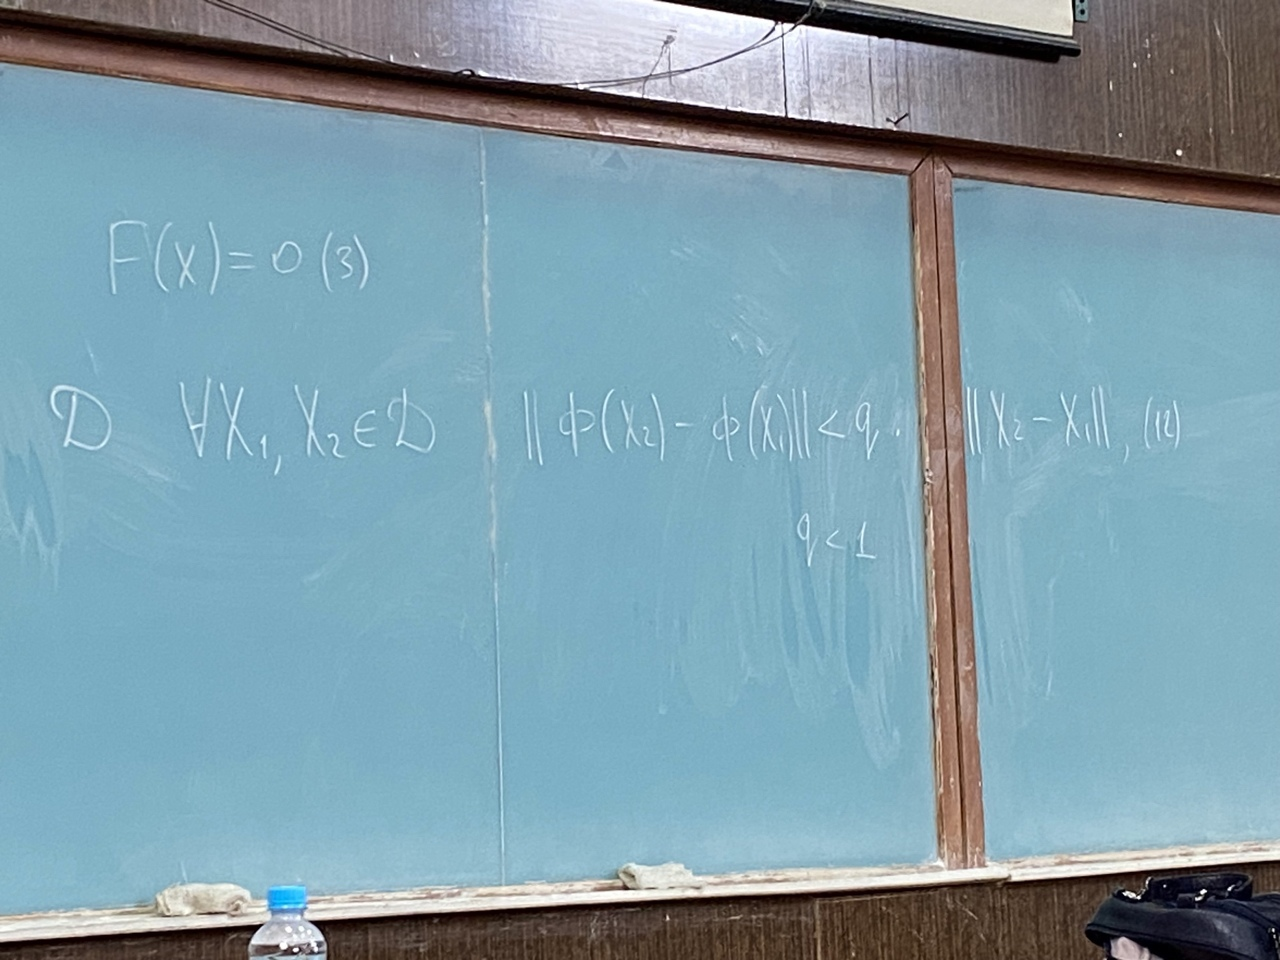 F(x) = 0 (3)
D ∀x₁, x₂ ∈ D ‖Φ(x₂) - Φ(x₁)‖ < q · ‖x₂ - x₁‖, (12)
q < 1